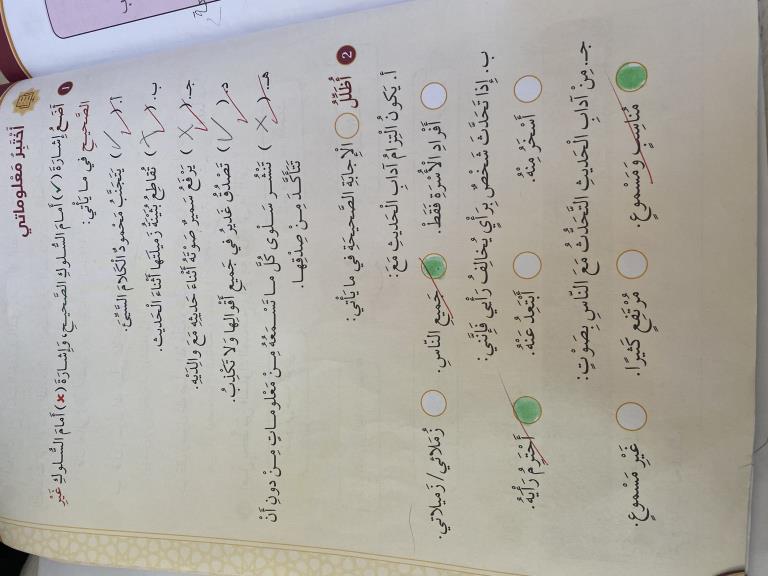 أَخْتَبِرُ مَعْلوماتي
1 أَضَعُ إِشارَةَ (✓) أَمامَ السُّلوكِ الصَّحيحِ، وَإِشارَةَ (×) أَمامَ السُّلوكِ غَيْرِ
الصَّحيحِ في ما يَأْتي:
أ. (✓) يَتَجَنَّبُ مَحْمودٌ الْكَلامَ السَّيِّئَ.
ب. (×) تُقاطِعُ بُثَيْنَةُ زَميلَتَها أَثْناءَ الْحَديثِ.
جـ. (×) يَرْفَعُ سَميرٌ صَوْتَهُ أَثْناءَ حَديثِهِ مَعَ والِدَيْهِ.
د. (✓) تَصْدُقُ غَديرُ في جَميعِ أَقْوالِها وَلا تَكْذِبُ.
هـ. (×) تَنْشُرُ سَلْوى كُلَّ ما تَسْمَعُهُ مِنْ مَعْلوماتٍ مِنْ دونِ أَنْ
تَتَأَكَّدَ مِنْ صِدْقِها.
2 أُظَلِّلُ الْإِجابَةَ الصَّحيحَةَ في ما يَأْتي:
أ. يَكونُ الْتِزامُ آدابِ الْحَديثِ مَعَ:
أَفْرادِ الْأُسْرَةِ فَقَطْ. جَميعِ النّاسِ. زُمَلائي/ زَميلاتي.
ب. إِذا تَحَدَّثَ شَخْصٌ بِرَأْيٍ يُخالِفُ رَأْيي فَإِنَّني:
أَسْخَرُ مِنْهُ. أَبْتَعِدُ عَنْهُ. أَحْتَرِمُ رَأْيَهُ.
جـ. مِنْ آدابِ الْحَديثِ التَّحَدُّثُ مَعَ النّاسِ بِصَوْتٍ:
مُناسِبٍ وَمَسْموعٍ. مُرْتَفِعٍ كَثيرًا. غَيْرِ مَسْموعٍ.